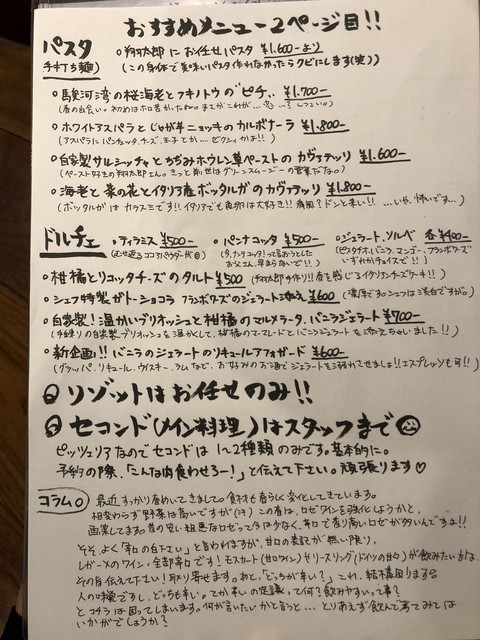 おすすめメニュー2ページ目!!
パスタ
手打ち麺
○翔太郎にお任せパスタ ¥1.600-より
(この身体で美味いパスタ作れなかったらクビにします(笑))
○駿河湾の桜海老とフキノトウの"ピチ" ¥1.700-
○ホワイトアスパラとじゃが芋ニョッキのカルボナーラ ¥1.800-
○自家製サルシッチャとちぢみホウレン草ペーストのカヴァテッリ ¥1.600-
○海老と菜の花とイタリア産ボッタルガのカヴァテッリ ¥1.800-
(ボッタルガはカラスミです!!イタリアでも魚卵は大好き!!痛風?ドンと来い!!…いや、怖いです…)
ドルチェ
○ティラミス ¥500-
○パンナコッタ ¥500-
○ジェラート、ソルベ 各¥400-
(ピスタチオ、バニラ、マンゴー、フランボワーズ
いずれかチョイスで!!)
○柑橘とリコッタチーズのタルト ¥500
(翔太郎手作り!!春を感じるイタリアンチーズケーキ!!)
○シェフ特製ガトーショコラ フランボワーズのジェラート添え ¥600
○自家製!温かいブリオッシュと柑橘のマルメラータ、バニラジェラート ¥700-
(手練りの自家製ブリオッシュを温かくして、柑橘のマーマレードとバニラジェラートを添えちゃいました!!)
○新企画!!バニラのジェラートのリキュールアフォガード ¥600-
(グラッパ、リキュール、ウイスキー、ラムなど、お好みのお酒でジェラートを溺れさせましょ!!エスプレッソも可!!)
リゾットはお任せのみ!!
セコンド(メイン料理)はスタッフまで
ピッツェリアなのでセコンドは1~2種類のみです。基本的に。
予約の際、「こんな肉食わせろー!」と伝えて下さい。頑張ります♡
コラム
最近、すっかり春めいてきまして。食材も春らしく変化してきています。
相変わらず野菜は高いですが(汗)この春は、ロゼワインを強化しようかと、
画策してます。昔の安い粗悪なロゼって今は少なく、辛口で香り高いロゼが多いんですよ!!
そそ、よく「辛口の白下さい」と言われますが、甘口の表記が無い限り、
レガーメのワイン、全部辛口です!モスカート(甘口ワイン)やリースリング(ドイツの甘口)が飲みたい方は、
その旨伝えて下さい!取り寄せます。あと、「どっちが辛い?」これ、結構困りまする
人の味覚ですし、どっちも辛い。てか辛いの定義って何?飲みやすいって事?
とコチラは困ってしまいます。何が言いたいかと言うと…とりあえず飲んで事てみては
いかがでしょうか?